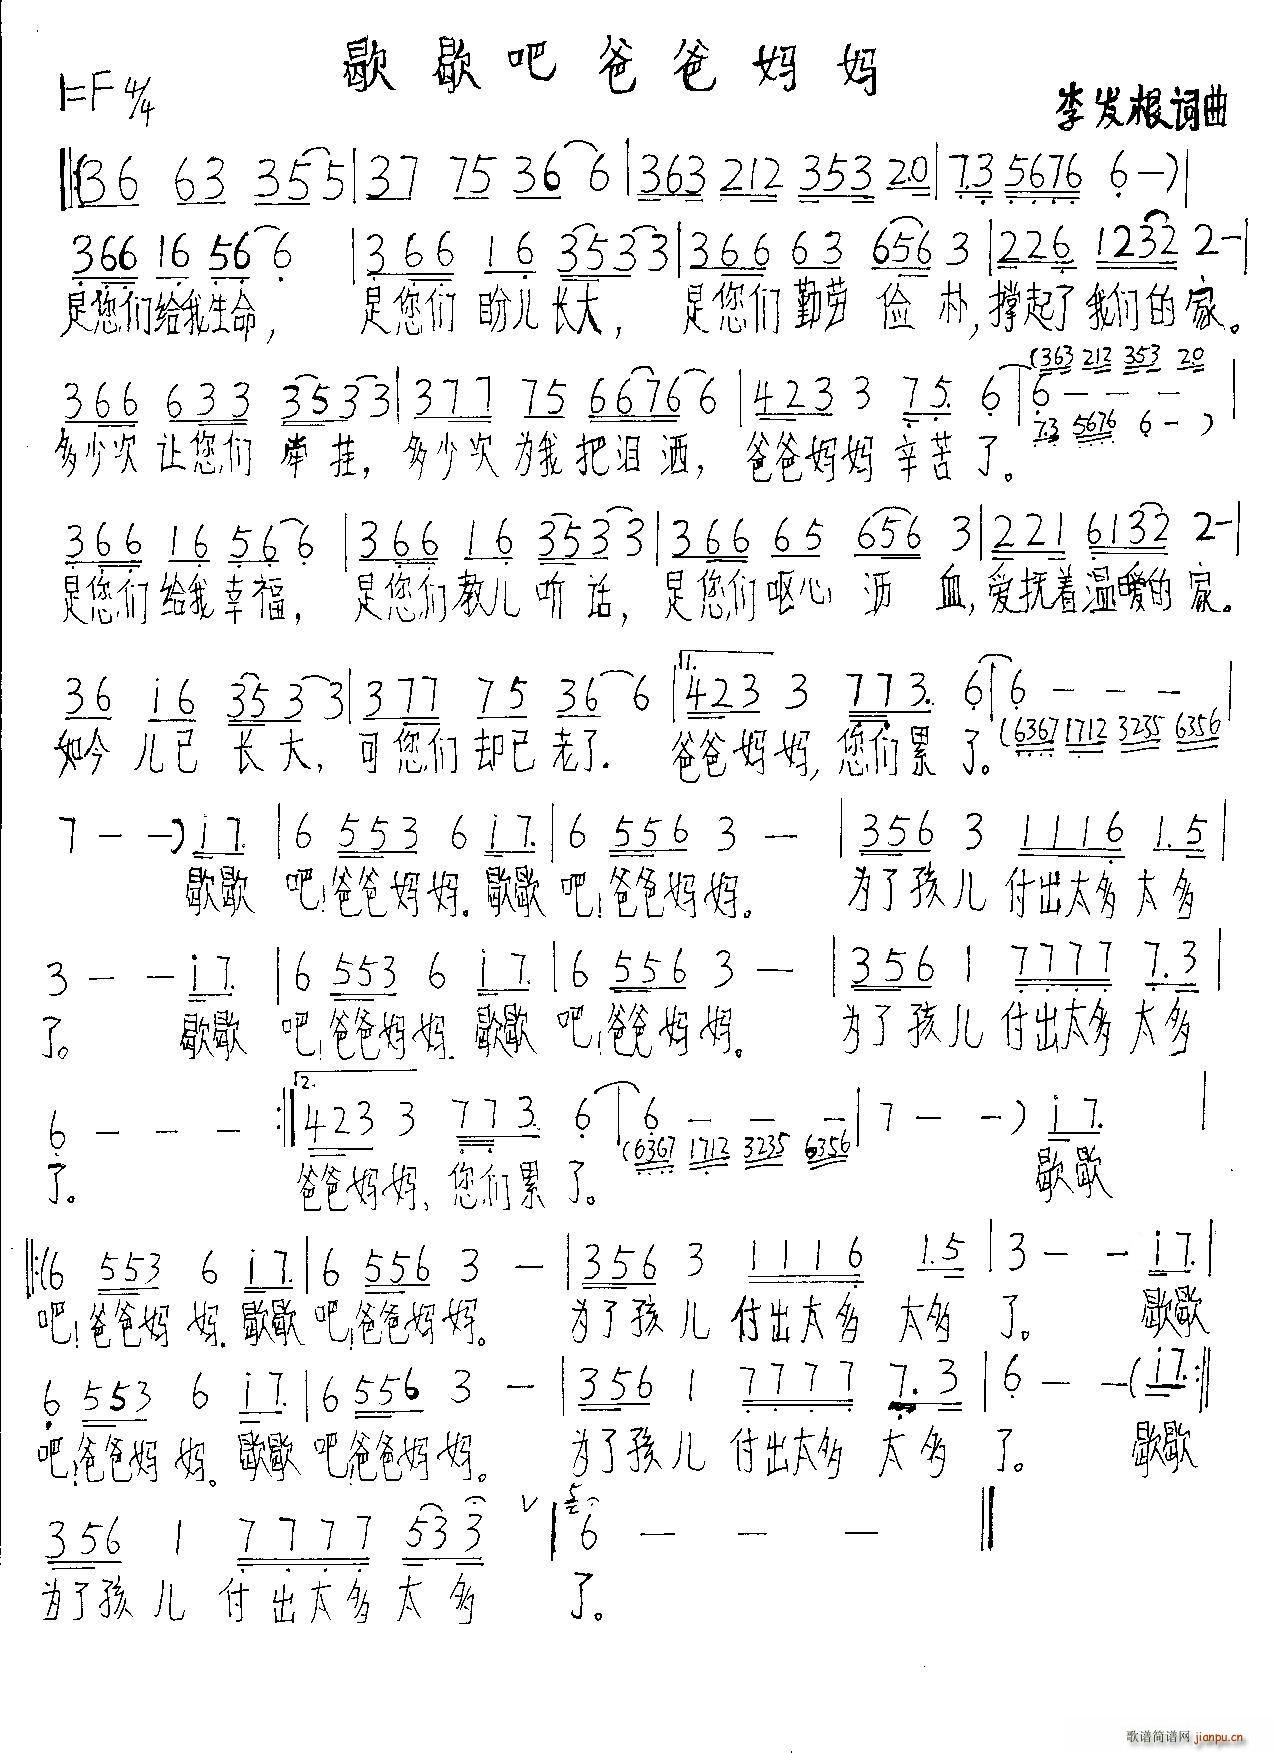 歇歇吧爸爸妈妈
1=F 4/4
李发根词曲
(36 63 355 | 37 75 36 6 | 363 212 353 2.0 | 7.3 5676 6 -) |
366 16 56 6 | 366 16 3533 | 366 63 656 3 | 226 1232 2- |
是您们给我生命, 是您们盼儿长大, 是您们勤劳俭朴,撑起了我们的家。
(363 212 353 20
366 633 3533 | 377 75 6676 6 | 423 3 3 7.5. 6 | 6 - - - |
73 5676 6 - )
多少次让您们牵挂, 多少次为我把泪洒, 爸爸妈妈辛苦了。
366 16 56 6 | 366 16 353 3 | 366 65 656 3 | 221 6132 2- |
是您们给我幸福, 是您们教儿听话, 是您们呕心沥血,爱抚着温暖的家。
36 i6 353 3 | 377 75 36 6 | 1. 423 3 773. 6 | 6 - - - |
(6367 1712 3235 6356
如今儿已长大, 可您们却已老了. 爸爸妈妈,您们累了。
7 - -) i7. | 6 553 6 i7. | 6 556 3 - | 356 3 1116 1.5 |
歇歇吧!爸爸妈妈.歇歇吧!爸爸妈妈。 为了孩儿付出太多太多
3 - - i7. | 6 553 6 i7. | 6 556 3 - | 356 1 7777 7.3 |
了。 歇歇吧!爸爸妈妈.歇歇吧!爸爸妈妈。 为了孩儿付出太多太多
6 - - - :|| 2. 423 3 773. 6 | 6 - - - | 7 - -) i7. |
(6367 1712 3235 6356
了。 爸爸妈妈、您们累了。 歇歇
||:(6 553 6 i7. | 6 556 3 - | 356 3 1116 1.5 | 3 - - i7. |
吧!爸爸妈妈.歇歇吧!爸爸妈妈。 为了孩儿付出太多太多了。 歇歇
6 553 6 i7. | 6 556 3 - | 356 1 7777 7.3 | 6 - -( i7. :||
吧!爸爸妈妈。歇歇吧!爸爸妈妈。 为了孩儿付出太多太多了。 歇歇
356 1 7777 533 V | 6 - - - ||
为了孩儿付出太多太多了。
歌谱简谱网 jianpu.cn